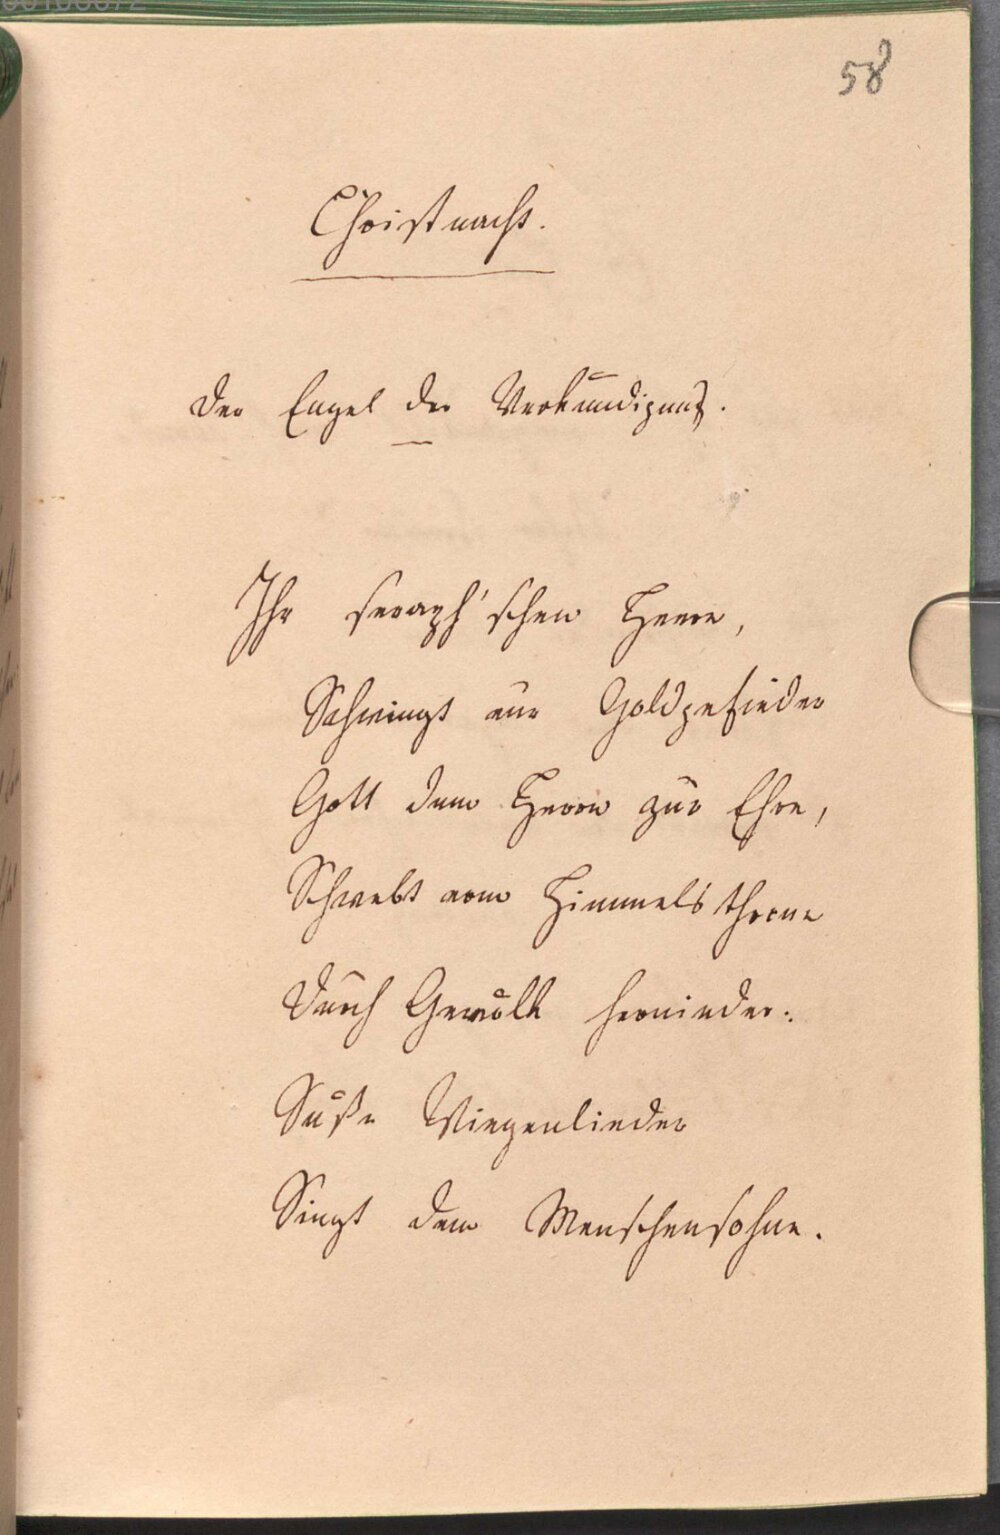 58
Christnacht.
Der Engel der Verkündigung.
Ihr seraph'schen Heere,
Schwingt eur Goldgefieder
Gott dem Herrn zur Ehre,
Schwebt vom Himmelsthrone
Durch Gewölk hernieder.
Süße Wiegenlieder
Singt dem Menschensohne.